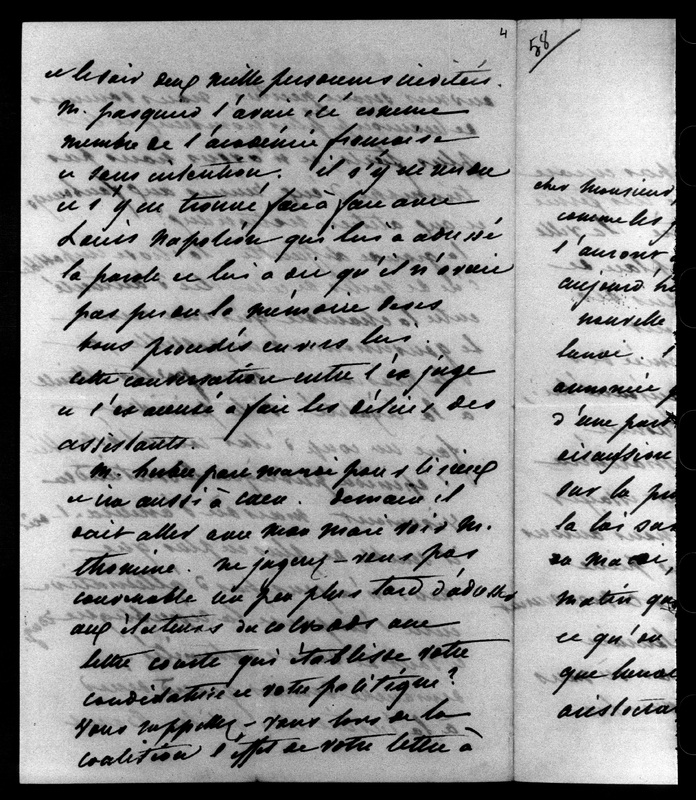 4
et le soir deux mille personnes invitées.
M. pasquier l'avait été comme
membre de l'académie française
et sans intention. il s'y rendu
et s'y est trouvé face à face avec
Louis napoléon qui lui a adressé
la parole et lui a dit qu'il n'avait
pas perdu la mémoire de ses
bons procédés envers lui.
cette conversation entre l'ex juge
et l'ex accusé a fait les délices des
assistants.
M. part mardi pour lisieux
et ira aussi à caen. demain il
doit aller avec mon mari voir M.
thomine. ne jugez-vous pas
convenable un peu plus tard d'adresser
aux électeurs du calvados une
lettre courte qui établisse votre
candidature et votre politique?
vous rappellez-vous lors de la
coalition l'effet de votre lettre à
58
cher Monsieur,
comme les
l'auront
aujourd'hu
nouvelle
annoncée
d'une part
discussion
sur la
la loi
matin
ce qu'on
que
aristocra